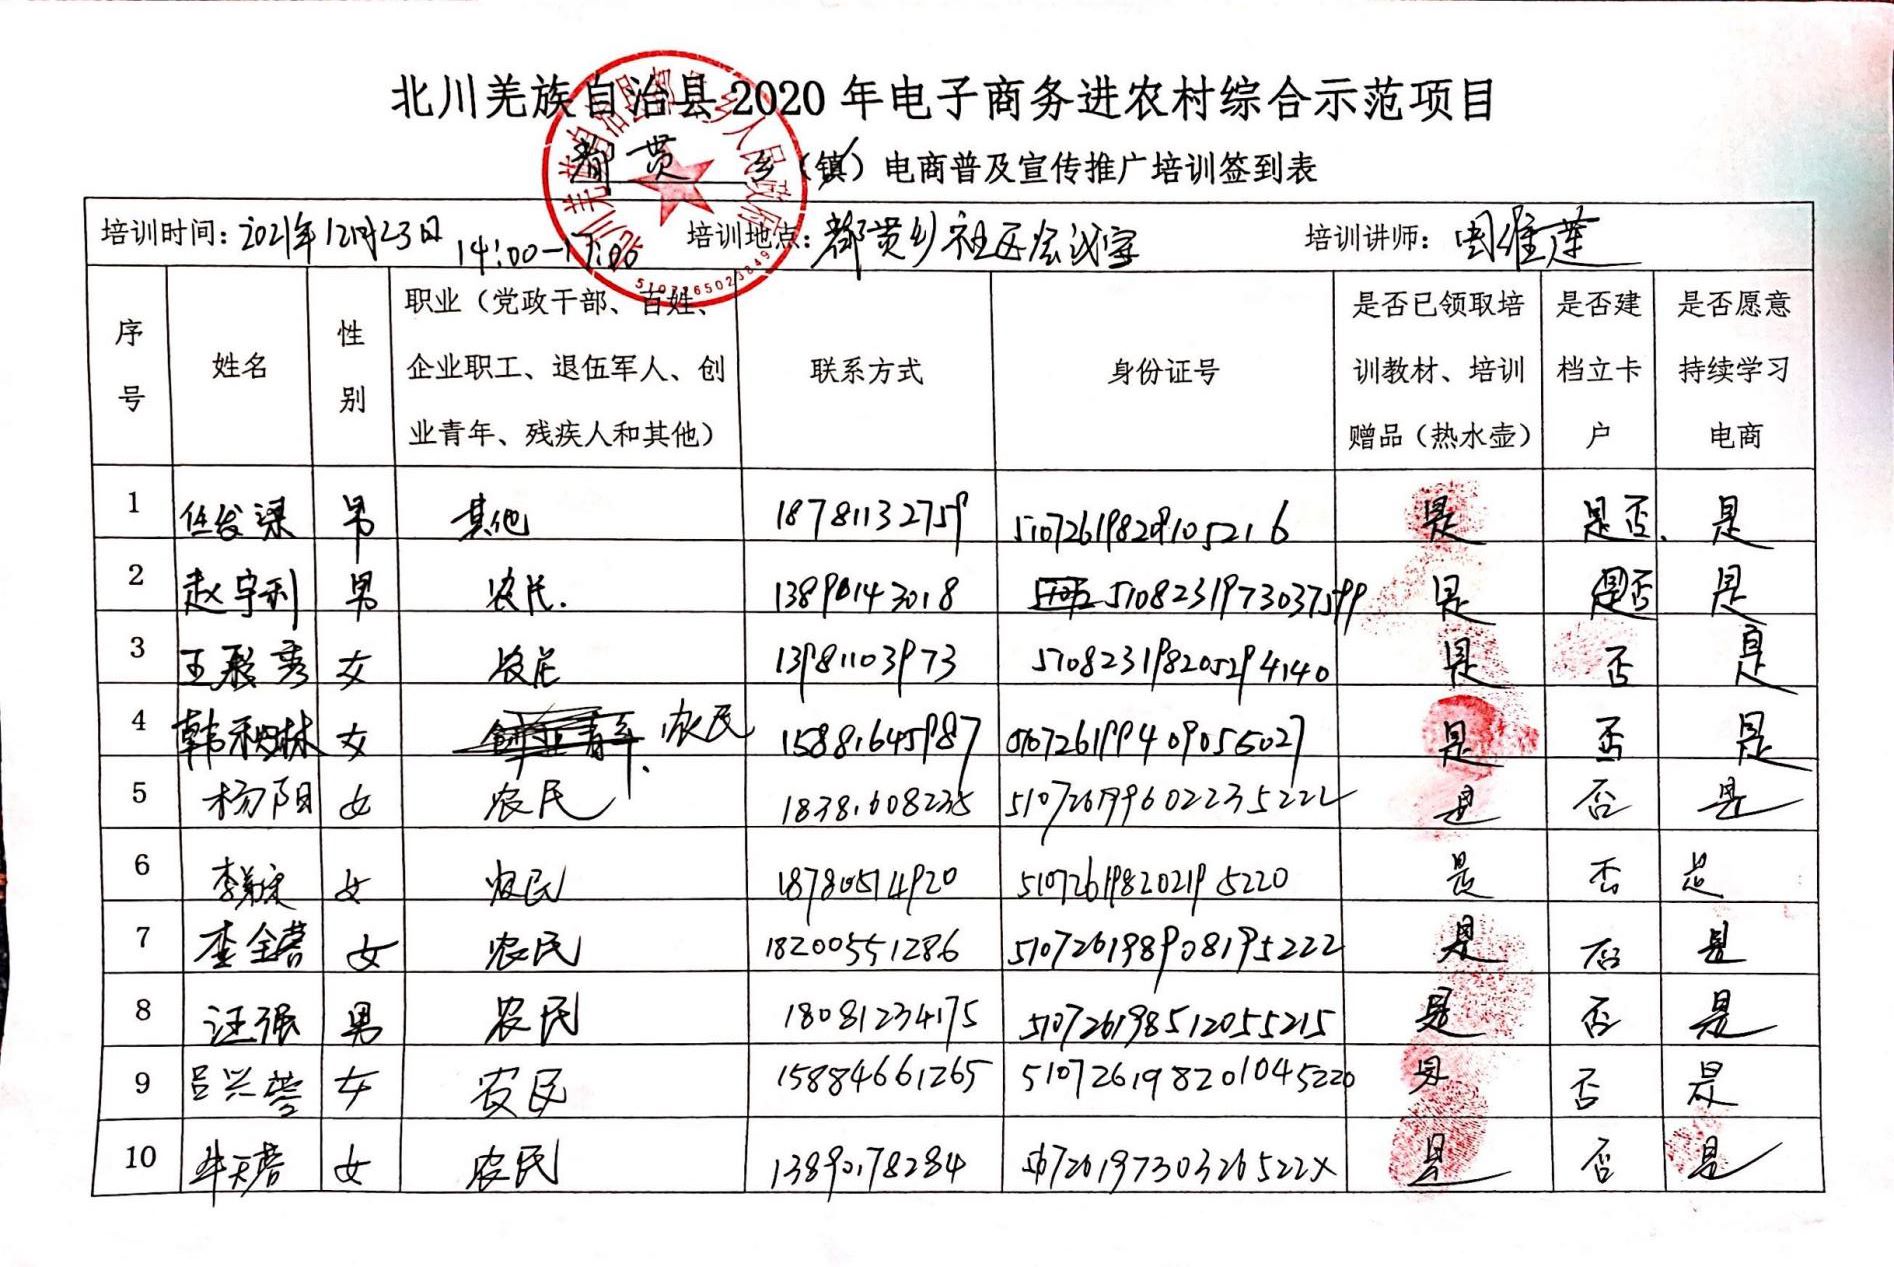 北川羌族自治县2020年电子商务进农村综合示范项目
都贯 乡(镇)电商普及宣传推广培训签到表
培训时间:2021年12月23日 14:00-17:00 培训地点:都贯乡社区会议室 培训讲师:周维莲
序号 姓名 性别 职业(党政干部、百姓、企业职工、退伍军人、创业青年、残疾人和其他) 联系方式 身份证号 是否已领取培训教材、培训赠品(热水壶) 是否建档立卡户 是否愿意持续学习电商
1 任发梁 男 其他 18781132759 510726198209105216 是 是否. 是
2 赵宇利 男 农民. 13890143018 5108231973037599 是 是否 是
3 王聚秀 女 农民 13981103973 510823198205294140 是 否 是
4 韩秋林 女 农民 15881645987 510726199409055027 是 否 是
5 杨阳 女 农民 18381608235 510726199602235222 是 否 是
6 李 女 农民 18780514920 510726198202195220 是 否 是
7 李全蓉 女 农民 18200551286 510726198908195222 是 否 是
8 汪强 男 农民 18081234175 510726198512055215 是 否 是
9 吕兴蓉 女 农民 15884661265 510726198201045220 是 否 是
10 牟天蓉 女 农民 13890178284 51072619730326522X 是 否 是